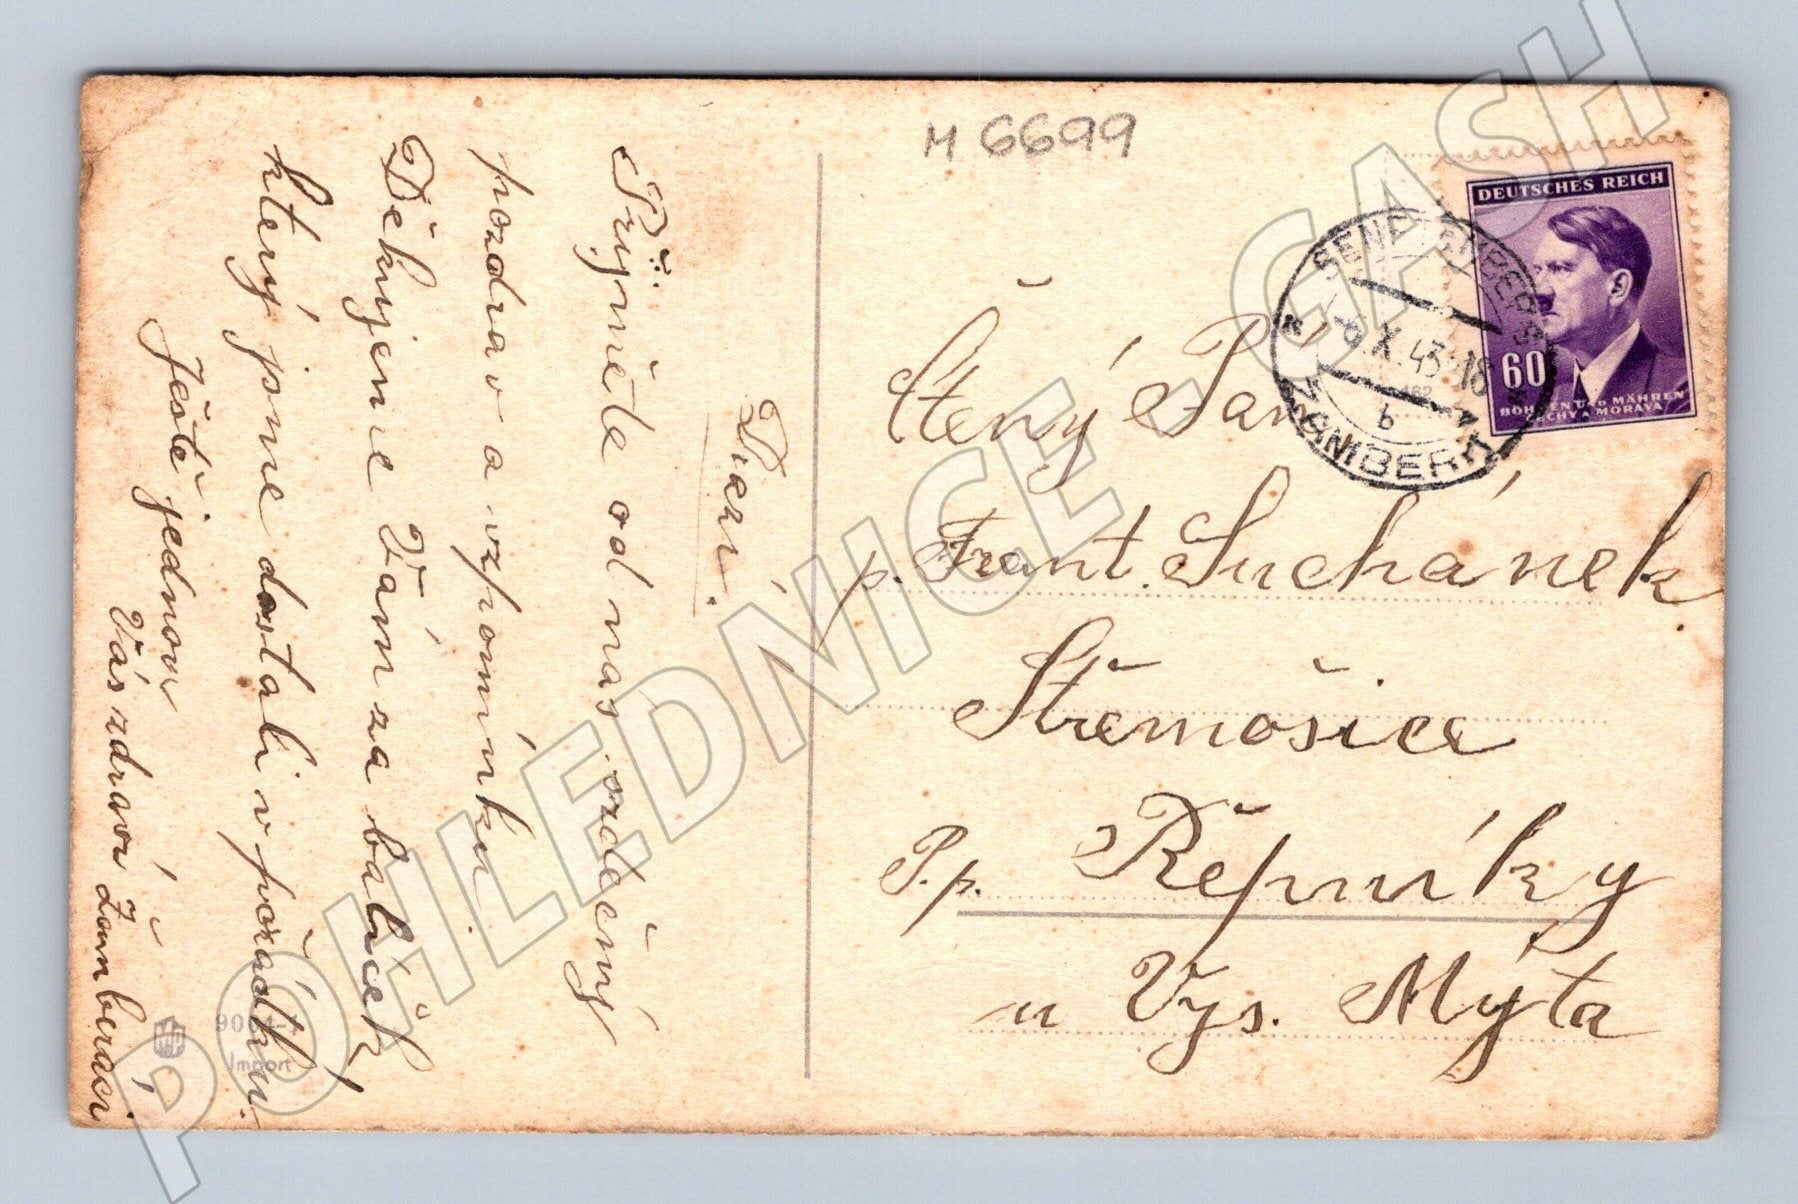 M 6699
DEUTSCHES REICH
60
BÖHMEN UND MÄHREN
ČECHY A MORAVA
SENFTENBERG
-6.X.43-18
b
ŽAMBERK
Ctěný Pan
p. Frant. Suchánek
Střemošice
P.p. Řepníky
u Vys. Mýta
Přijměte od nás srdečný
pozdrav a vzpomínku.
Děkujeme Vám za balíček,
který jsme dostali v pořádku.
Ještě jednou
Vás zdraví Žamberácí
9064-1
Import
POHLEDNICE - GASH